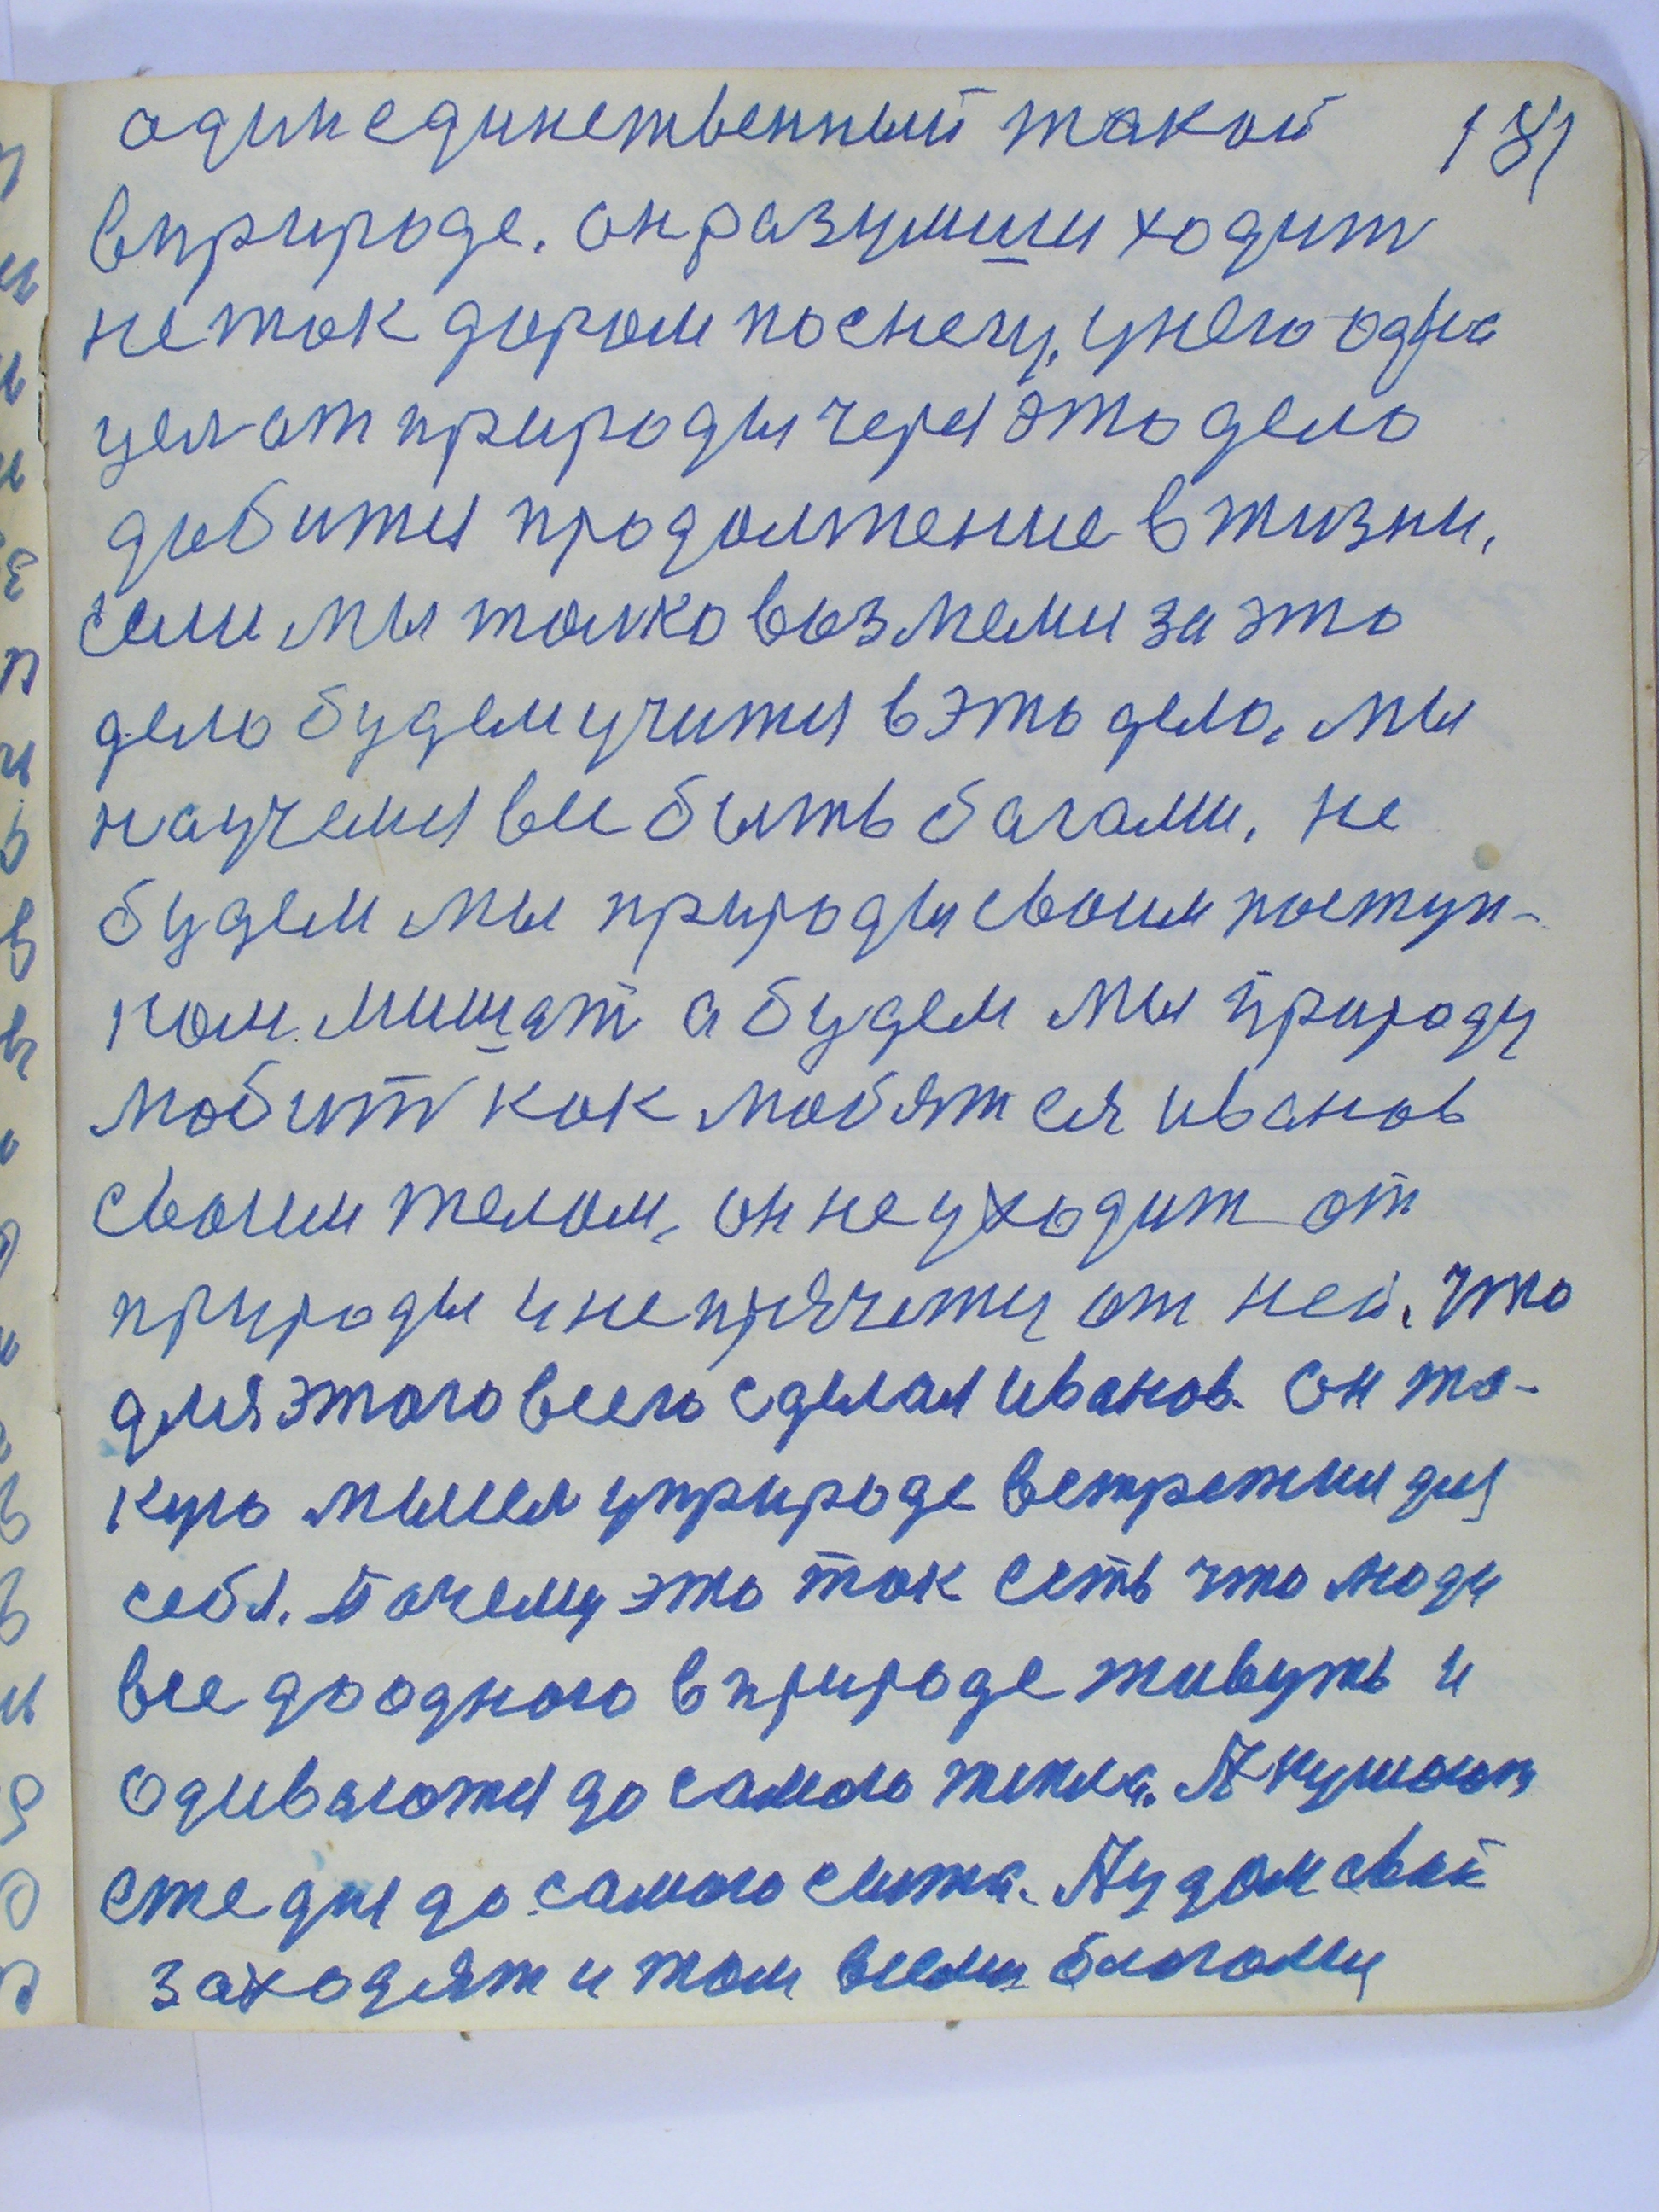 один единственный такой 181
в природе. он разумши ходит
не так даром по снегу, у него одна
цел от природы через это дело
добится продолжение в жизни.
если мы толко возмемся за это
дело будем учится в это дело, мы
научемся все быть багами. не
будем мы природы своим поступ-
ком мишат а будем мы природу
любит как любятся иванов
своим телом, он не уходит от
природы и не прячется от ней. что
для этого всего сделал иванов. Он та-
кую мысел у природе встретил для
себя. Почему это так есть что люди
все до одного в природе живуть и
одиваются до самого тепла. А кушают
еже дня до самого сыта. А у дом свой
заходят и там всеми благами